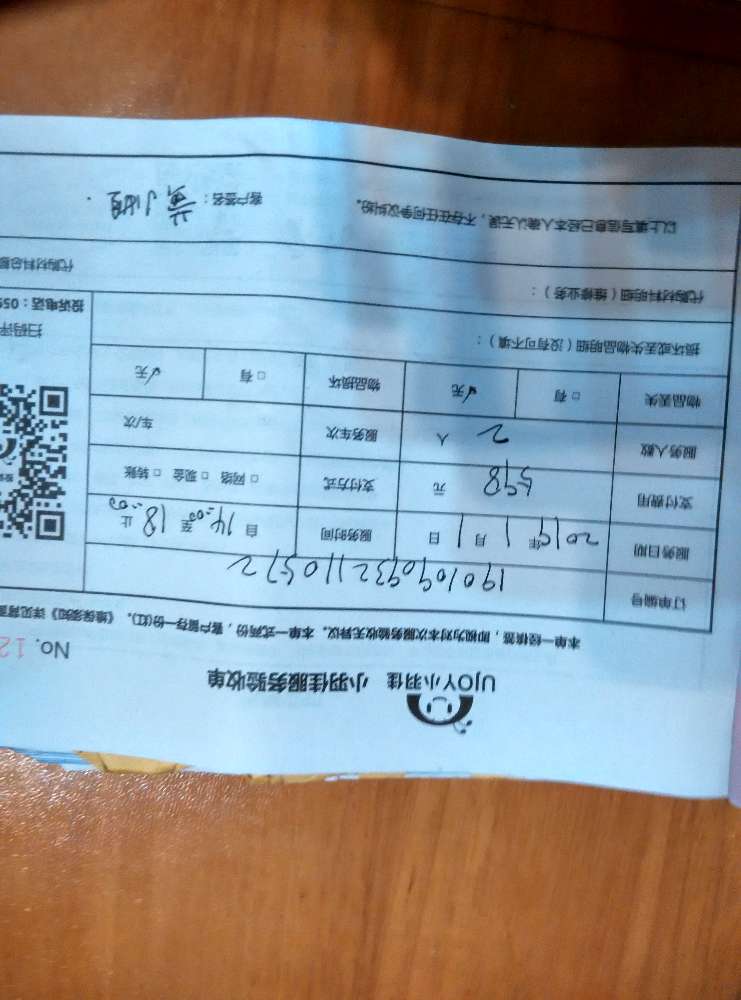 UJOY小羽佳 小羽佳服务验收单
No. 12
本单一经填签,即视为对本次服务验收无异议。本单一式两份,客户留存一份(红)。《维保须知》详见背面
订单编号 19010909321110572
服务日期 2019年 1月 1日 服务时间 自 14:00 至 18:00 止
支付费用 598 元 支付方式 □ 网络 □ 现金 □ 转账
服务人数 2 人 服务车次 车/次
物品丢失 □ 有 ✓无 物品损坏 □ 有 ✓无
损坏或丢失物品明细(没有可不填):
扫码评
投诉电话:059
代购材料明细(维修业务):
代购材料总额
以上填写信息已经本人确认无误,不存在任何争议纠纷。 客户签名: